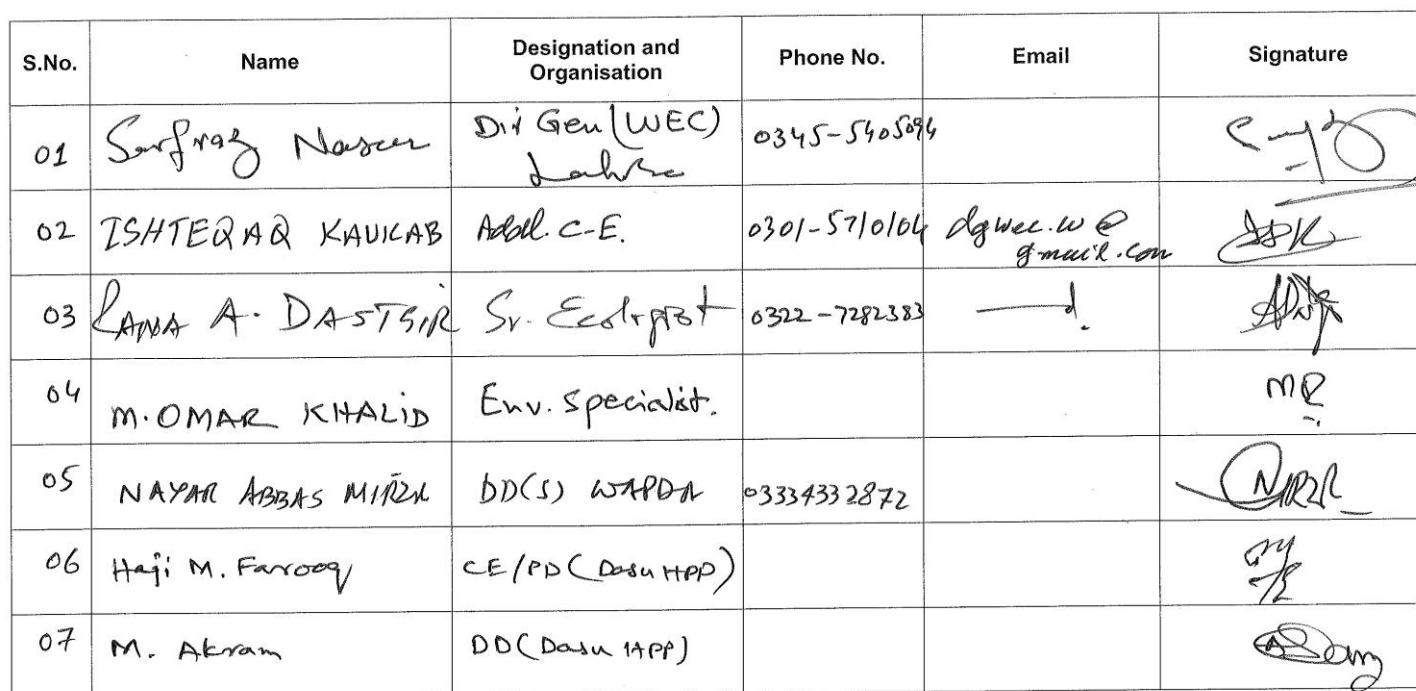 S.No. Name Designation and Organisation Phone No. Email Signature
01 Sarfraz Naseer Dir Gen (WEC) 0345-5405094
Lahore
02 ISHTEQAQ KAUKAB Addl. C-E. 0301-5710104 dgwec.w@
gmail.com
03 RANA A. DASTGIR Sr. Ecologist 0322-7282383
04 M. OMAR KHALID Env. Specialist. MR
05 NAYAR ABBAS MIRZA DD(S) WAPDA 03334332872
06 Haji M. Farooq CE/PD (Dasu HPP)
07 M. Akram DD (Dasu HPP)